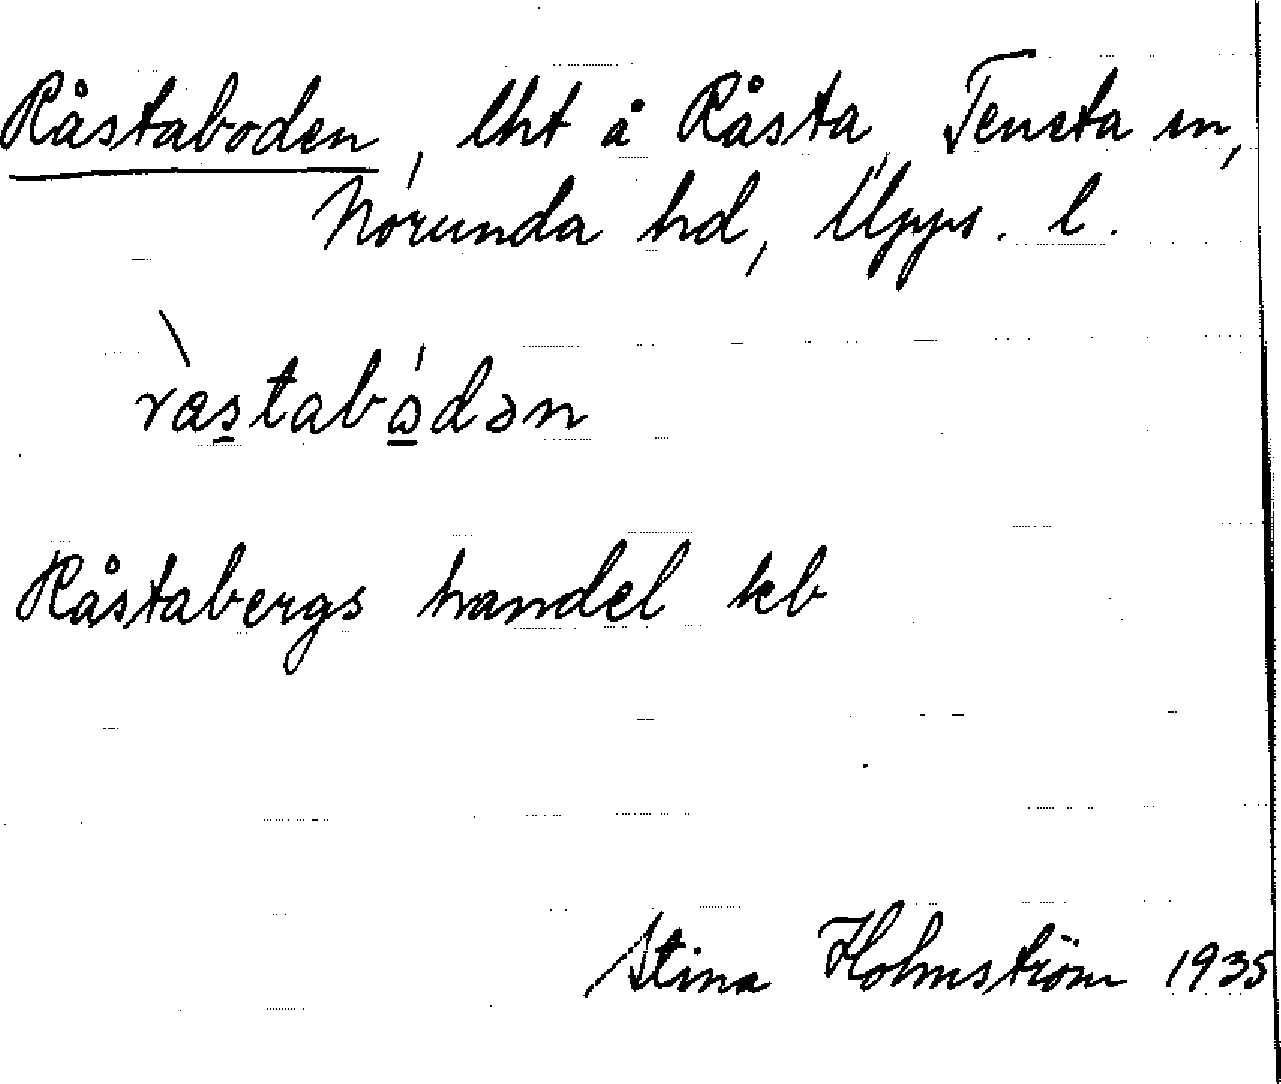 Råstaboden, lht å Råsta, Tensta sn,
Norunda hd, Upps. l.
Råstabergs handel kb
Stina Holmström 1935